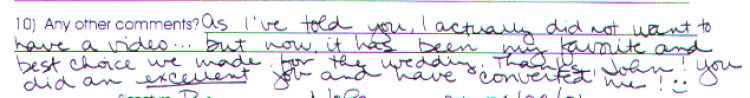 10) Any other comments? As I've told you, I actually did not want to
have a video... But now, it has been my favorite and
best choice we made for the wedding. Thanks, John! You
did an excellent job and have converted me! :)